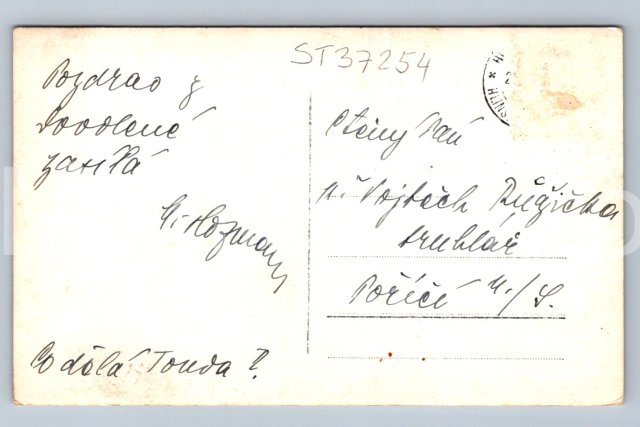 ST37254
Pozdrav z
dovolené
zasílá
Hofmann
Co dělá Tonda?
Ctěný Pán
Vojtěch Růžička
truhlář
Poříčí n./S.